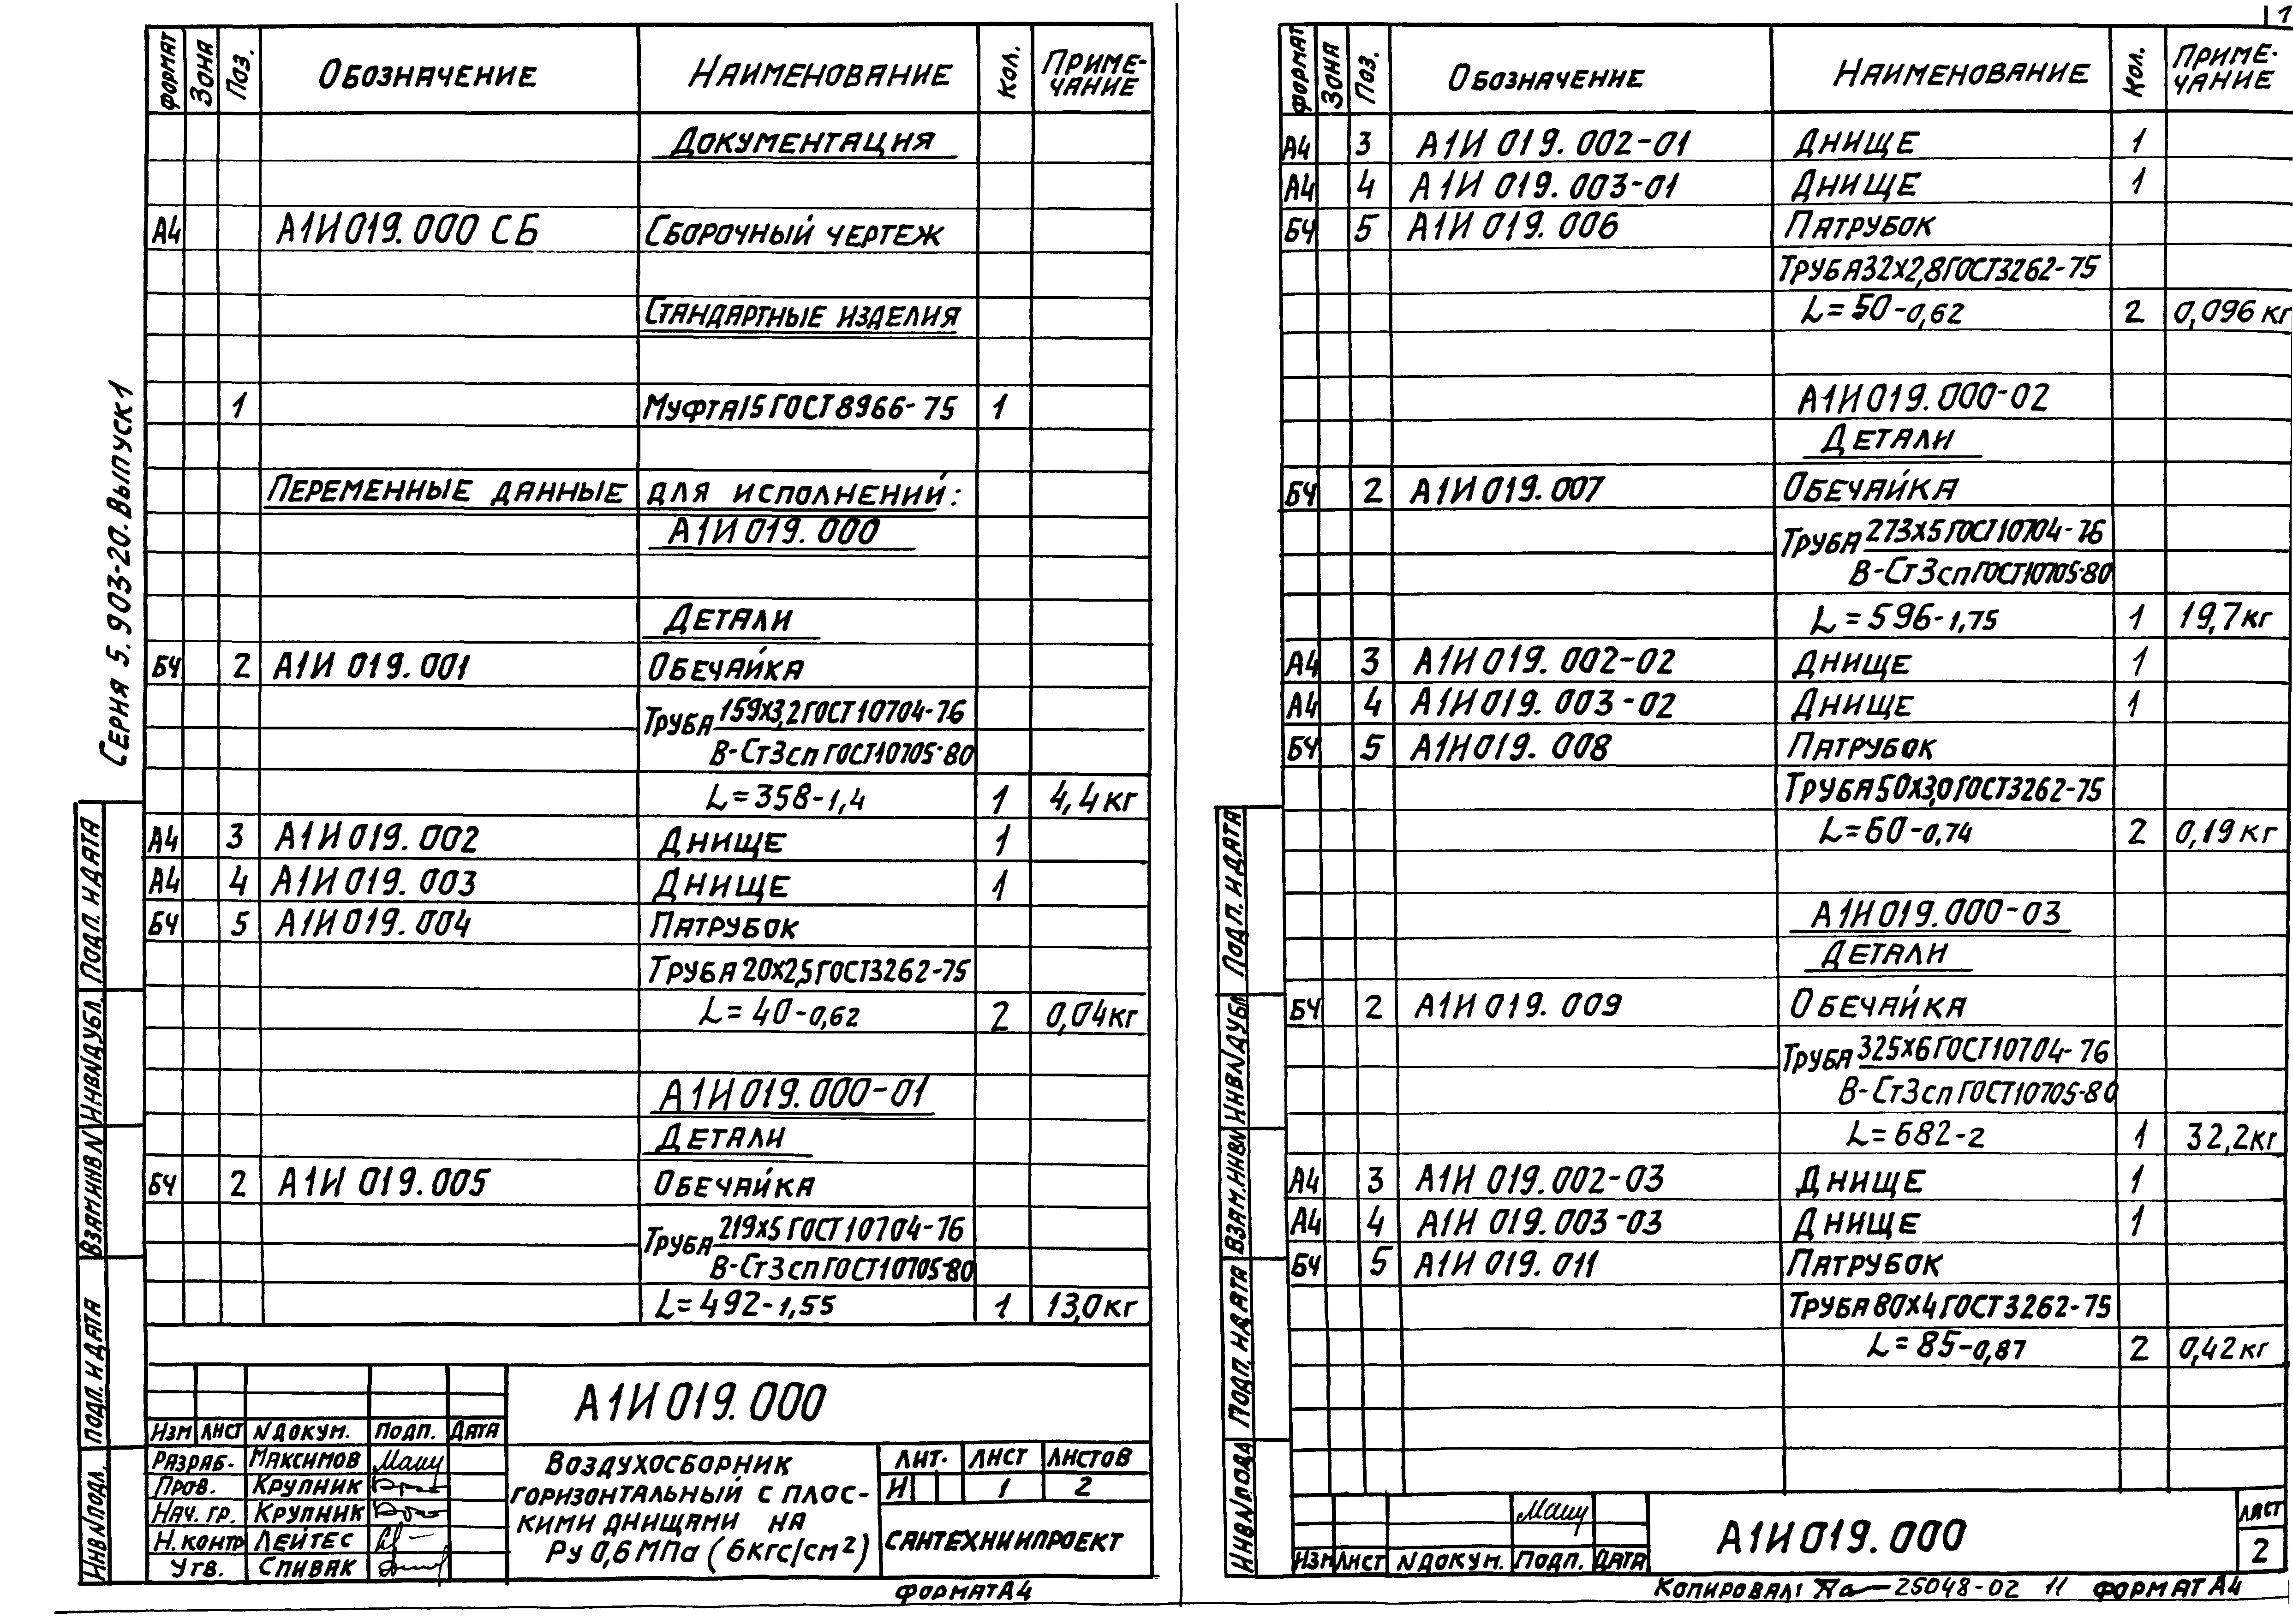 Серия 5.903-20. Выпуск 1
Формат Зона Поз. Обозначение Наименование Кол. Приме-
чание
Документация
А4 А1И019.000 СБ Сборочный чертеж
Стандартные изделия
1 Муфта 15 ГОСТ 8966-75 1
Переменные данные для исполнений:
А1И019.000
Детали
БЧ 2 А1И 019.001 Обечайка
Труба 159х3,2 ГОСТ 10704-76
В-Ст3сп ГОСТ 10705-80
L=358-1,4 1 4,4 кг
А4 3 А1И 019.002 Днище 1
А4 4 А1И 019.003 Днище 1
БЧ 5 А1И 019.004 Патрубок
Труба 20х2,5 ГОСТ 3262-75
L=40-0,62 2 0,04 кг
А1И019.000-01
Детали
БЧ 2 А1И 019.005 Обечайка
Труба 219х5 ГОСТ 10704-76
В-Ст3сп ГОСТ 10705-80
L=492-1,55 1 13,0 кг
Инв N подл. Подп. и дата Взам инв N Инв N дубл. Подп. и дата
А1И019.000
Изм Лист N докум. Подп. Дата
Разраб. Максимов
Пров. Крупник
Нач. гр. Крупник
Н.контр Лейтес
Утв. Спивак
Воздухосборник
горизонтальный с плос-
кими днищами на
Ру 0,6 МПа (6кгс/см²)
Лит. Лист Листов
И 1 2
САНТЕХНИИПРОЕКТ
Формат А4
1
Формат Зона Поз. Обозначение Наименование Кол. Приме-
чание
А4 3 А1И 019.002-01 Днище 1
А4 4 А1И 019.003-01 Днище 1
БЧ 5 А1И 019.006 Патрубок
Труба 32х2,8 ГОСТ 3262-75
L=50-0,62 2 0,096 кг
А1И019.000-02
Детали
БЧ 2 А1И 019.007 Обечайка
Труба 273х5 ГОСТ 10704-76
В-Ст3сп ГОСТ 10705-80
L=596-1,75 1 19,7 кг
А4 3 А1И 019.002-02 Днище 1
А4 4 А1И 019.003-02 Днище 1
БЧ 5 А1И019.008 Патрубок
Труба 50х3,0 ГОСТ 3262-75
L=60-0,74 2 0,19 кг
А1И019.000-03
Детали
БЧ 2 А1И 019.009 Обечайка
Труба 325х6 ГОСТ 10704-76
В-Ст3сп ГОСТ 10705-80
L=682-2 1 32,2 кг
А4 3 А1И 019.002-03 Днище 1
А4 4 А1И 019.003-03 Днище 1
БЧ 5 А1И 019.011 Патрубок
Труба 80х4 ГОСТ 3262-75
L=85-0,87 2 0,42 кг
Инв N подл Подп. и дата Взам. инв N Инв N дубл Подп. и дата
Изм Лист N докум. Подп. Дата
А1И019.000
Лист
2
Копировал: 25048-02 11 Формат А4